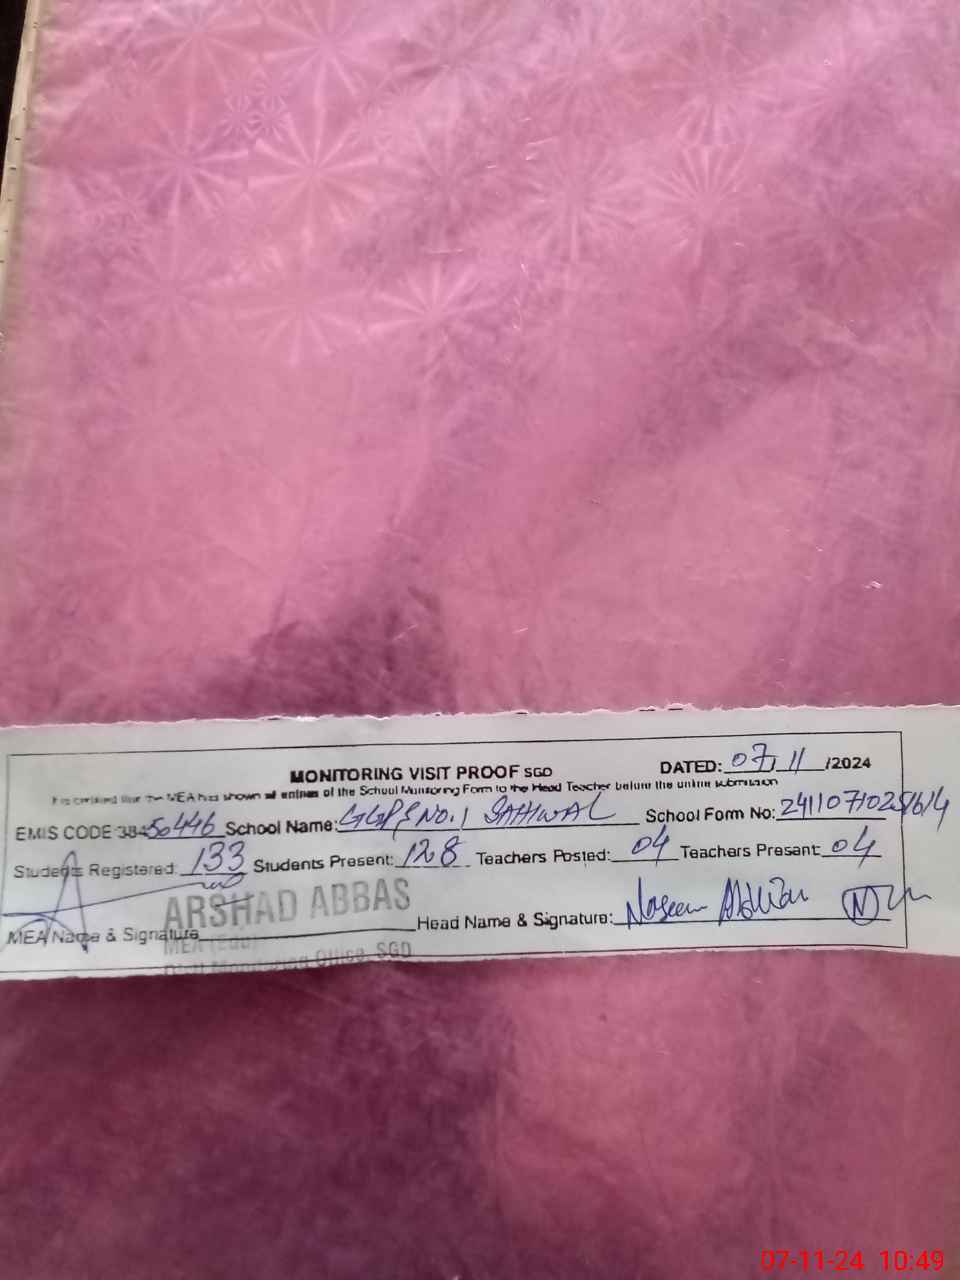 MONITORING VISIT PROOF SGD
DATED: 07/11/2024
It is certified that the MEA has shown all entries of the School Monitoring Form to the Head Teacher before the online submission
EMIS CODE 38450446 School Name: GGPS NO.1 SAHIWAL School Form No:
Students Registered: 133 Students Present: 128 Teachers Posted: 04 Teachers Present: 04
ARSHAD ABBAS
MEA Name & Signature Head Name & Signature: Naseem
MEA (Edu)
Distt Monitoring Office, SGD
07-11-24 10:49